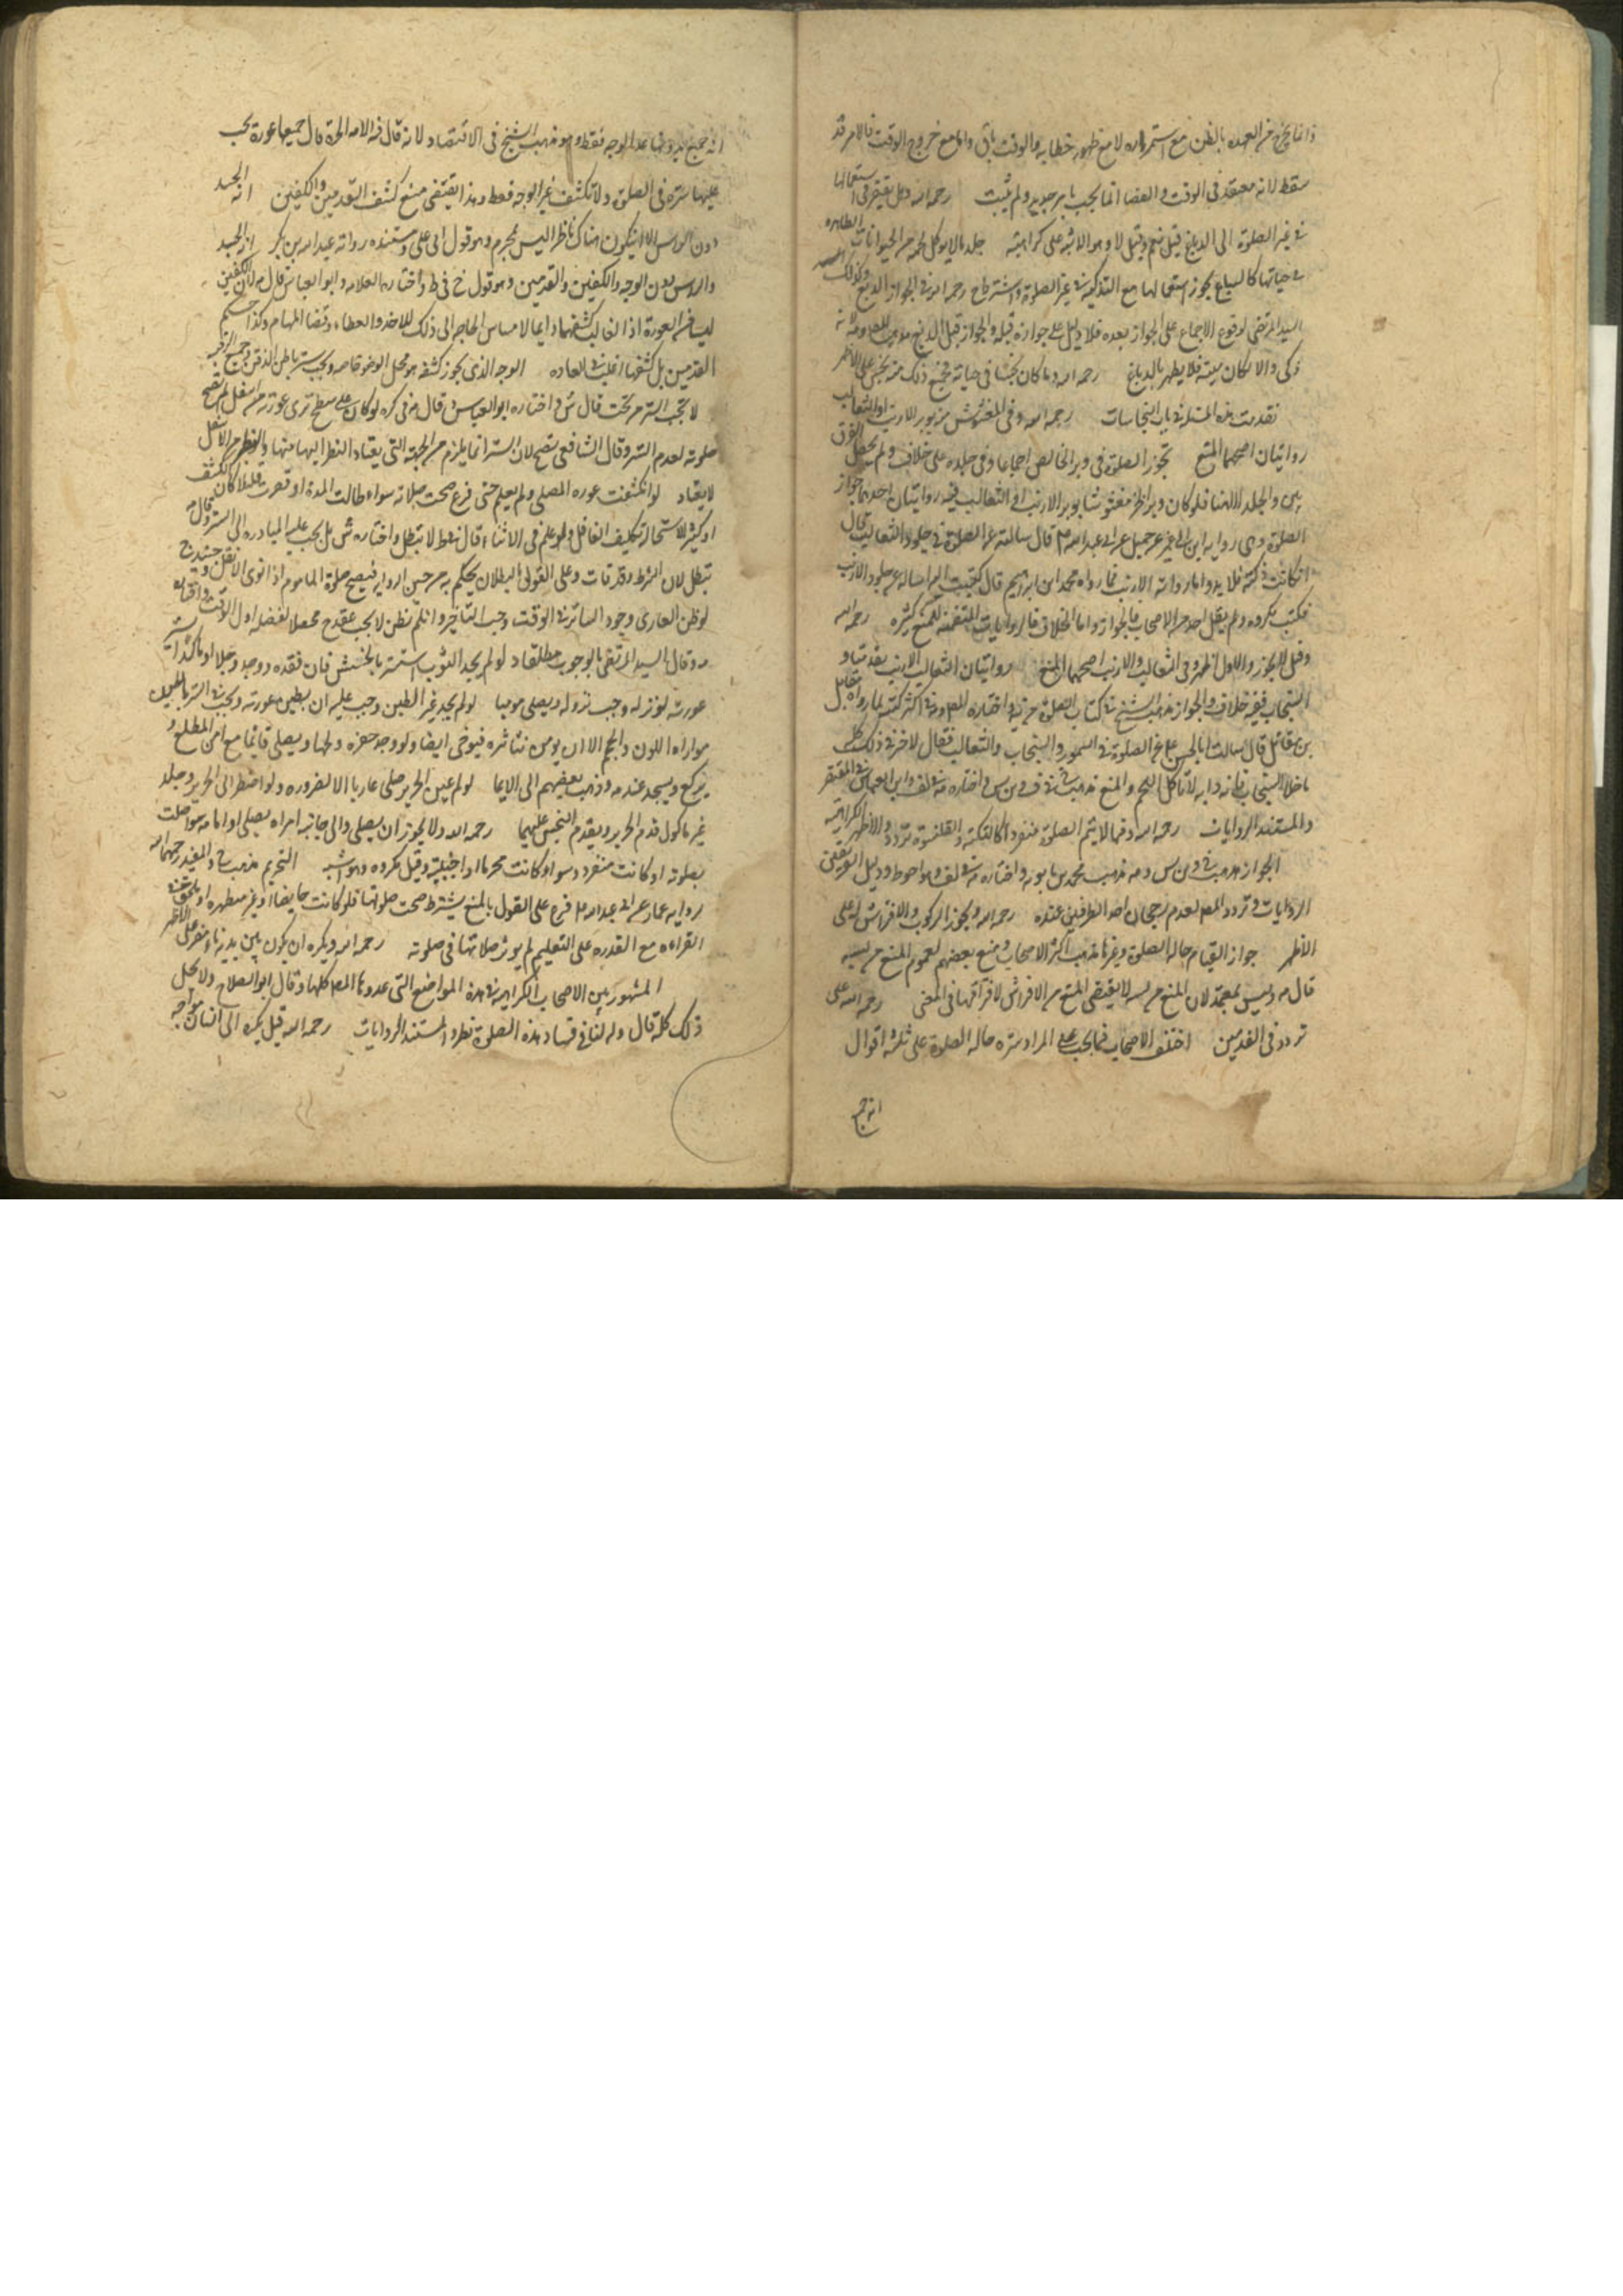 وانما يخرج من العهده بالظن مع استمراره لا مع ظهور خطايه والوقت باق واما مع خروج الوقت فالامر قد
سقط لانه معتقد في الوقت والقضا انما يجب بامر جديد ولم يثبت رحمه الله وهل يفتقر في استعمالها
في غير الصلوة الى الدباغ قيل نعم وقيل لا وهو الاشبه على كراهية جلد ما لا يوكل لحمه من الحيوانات الطاهره
في حياتها كالسباع يجوز استعمالها مع التذكية في غير الصلوة واشترط في الجواز الدبغ وكذلك
السيد المرتضى لوقوع الاجماع على الجواز بعده فلا دليل على جوازه قبله والجواز قبل الدبغ مذهب المصنف لانه
ذكى والا لكان ميتة فلا يطهر بالدباغ رحمه الله وما كان نجسا في حياته فجميع ذلك منه نجس على الاظهر
تقدمت هذه المسئلة في باب النجاسات رحمه الله وفي المغشوش من وبر الارنب او الثعالب
روايتان اصحهما المنع تجوز الصلوة في وبر الخالص اجماعا وفي جلده على خلاف ولم يحصل الفرق
بين والجلد الا هنا فلو كان وبر الخز مغشوشا بوبر الارنب او الثعالب فيه روايتان احدهما جواز
الصلوة وهي رواية ابن ابي عمير عن جميل عن ابي عبد الله ع قال سالته عن الصلوة في جلود الثعالب قال
اذا كانت ذكية فلا باس واما رواية الارنب فما رواه محمد ابن ابراهيم قال كتبت اليه اساله عن جلود الارنب
فكتب مكروه ولم يقل احد من الاصحاب بالجواز واما الخلاف فالروايات المتضمنه للمنع كثيره رحمه الله
وقيل لا يجوز والاول اظهر وفي الثعالب والارنب روايتان اصحهما المنع روايتان الثعالب الارنب تقدمتا و
السنجاب ففيه خلاف والجواز مذهب الشيخ في كتاب الصلوة من يه واختاره المصنف في اكثر كتبه لما رواه مقاتل
بن مقاتل قال سالت ابا الحسن ع عن الصلوة في السمور والسنجاب والثعالب فقال لا خير في ذلك كله
ما خلا السنجاب فانه دابه لا تاكل اللحم والمنع مذهب واختاره في لف وابو العباس في المقتصر
والمستند الروايات رحمه الله وفيما لا يتم الصلوة منفردا كالتكة والقلنسوة تردد والاظهر الكراهية
الجواز مذهب والمنع مذهب محمد بن بابويه واختاره في لف وهو احوط ودليل الفريقين
الروايات وتردد المصنف لعدم رجحان احد الطرفين عنده رحمه الله ويجوز الركوب والافتراش له على
الاظهر جواز القيام حالة الصلوة وغيرها مذهب اكثر الاصحاب ومنع بعضهم لعموم المنع من لبسه
قال وليس بمعتمد لان المنع من لبسه لا يقتضي المنع من الافتراش لافتراقهما في المعنى رحمه الله على
تردد في القدمين اختلف الاصحاب فيما يجب على المراة ستره حالة الصلوة على ثلثة اقوال
انه جميع
انه جميع بدنها عدا الوجه فقط وهو مذهب الشيخ في الاقتصاد لانه قال في الامه الحرة قال جميعها عورة يجب
عليها ستره في الصلوة ولا تكشف غير الوجه فقط وهذا يقتضي منع كشف القدمين والكفين انه الجسد
دون الراس الا ان يكون هناك ناظرا ليس بمحرم وهو قول ابي علي ومستنده رواية عبد الله بن بكير انه الجسد
والراس دون الوجه والكفين والقدمين وهو قول خ في ط واختاره العلامه وابو العباس قال لان الكفين
ليسا من العورة اذ الغالب كشفهما دايما لامساس الحاجه الى ذلك للاخذ والعطاء وقضا المهام وكذا حكم
القدمين بل كشفها اغلب في العاده الوجه الذي يجوز كشفه هو محل الوضو خاصه ويجب ستر باطن الذقن وجميع الرقبه
لا يجب الستر من تحت قال ش واختاره ابو العباس وقال في كره لو كان على سطح ترى عورته من اسفل لم تصح
صلوته لعدم الستر وقال الشافعي تصح لان الستر انما يلزم من الجهة التي يعتاد النظر اليها منها والنظر من الاسفل
لا يعتاد لو انكشفت عوره المصلي ولم يعلم حتى فرغ صحت صلاته سواء طالت المدة او قصرت قليلا كان الكشف
او كثيرا لاستحالة تكليف الغافل ولو علم في الاثناء قال في ط لا تبطل واختاره ش بل يجب عليه المبادره الى الستر وقال
تبطل لان الشرط وقد فات وعلى القول بالبطلان يحكم به من حين الرويه فتصح صلوة الماموم اذا نوى الانفراد حينئذ
لو ظن العاري وجود الساتر في الوقت وجب التاخير وان لم يظن لا يجب محصلا لفضله اول الوقت
وقال السيد المرتضى بالوجوب مطلقا لو لم يجد الثوب استتر بالحشيش فان فقده ووجد وحلا او ماء كدرا ستر
عورته لو نزله وجب نزوله ويصلي موميا لو لم يجد غير الطين وجب عليه ان يطين عورته
مواراة اللون والحجم الا ان يومن تناثره فيومى ايضا ولو وجد حفره دخلها ويصلي قائما مع امن المطلع و
يركع ويسجد عند وذهب بعضهم الى الايما لو لم يجد غير الحرير صلى عاريا الا لضروره ولو اضطر الى الحرير وجلد
غير ماكول قدم الحرير ويقدم النجس عليهما رحمه الله ولا يجوز ان يصلي والى جانبه امراة يصلي او امامه سواء صلت
بصلوته او كانت منفردة سواء كانت محرما او اجنبية وقيل مكروه وهو اشبه التحريم مذهب والمفيد رحمهما الله
لرواية عمار عن ابي عبد الله ع فرع على القول بالمنع يشترط صحت صلوتها فلو كانت حايضا او غير متطهره او تاركة
القراءه مع القدره على التعليم لم يوثر صلاتها في صلوته رحمه الله ويكره ان يكون بين يديه نار مضرمه على الاظهر
المشهور بين الاصحاب الكراهية في هذه المواضع التي عدوها المصنف كلها وقال ابو الصلاح ولا يحل
ذلك كله قال ولنا في فساد هذه الصلوة نظر والمستند الروايات رحمه الله قيل يكره الى انسان مواجه